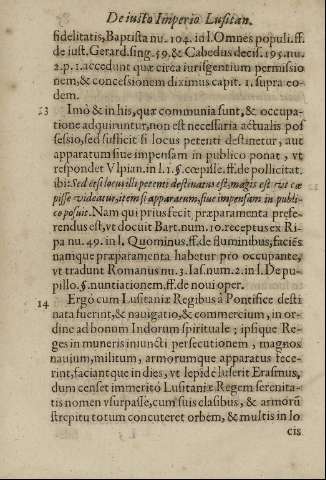 De iusto Imperio Lusitan.
fidelitatis, Baptista nu. 104. in l. Omnes populi. ff.
de iust. Gerard. sing. 59. & Cabedus decis. 195. nu.
2. p. 1. accedunt quæ circa iurisgentium permissio
nem, & concessionem diximus capit. 1. supra eo-
dem.
13 Imò & in his, quæ communia sunt, & occupa-
tione adquiruntur, non est necessaria actualis pos
sessio, sed sufficit si locus petenti destinetur, aut
apparatum siue impensam in publico ponat, vt
respondet Vlpian. in l. 1. §. cœpisse. ff. de pollicitat.
ibi: Sed etsi locus illi petenti destinatus est, magis est vt cœ
pisse videatur, item si apparatum, siue impensam in publi-
co posuit. Nam qui prius fecit præparamenta prefe-
rendus est, vt docuit Bart. num. 10. receptus ex Ri-
pa nu. 49. in l. Quominus. ff. de fluminibus, faciẽs
namque præparamenta habetur pro occupante,
vt tradunt Romanus nu. 3. Ias. num. 2. in l. De pu-
pillo. §. nuntiationem. ff. de noui oper.
14 Ergò cum Lusitaniæ Regibus à Pontifice desti
nata fuerint, & nauigatio, & commercium, in or-
dine ad bonum Indorum spirituale; ipsique Re-
ges in muneris iniuncti persecutionem, magnos
nauium, militum, armorumque apparatus fece-
rint, faciantque in dies, vt lepidè luserit Erasmus,
dum censet immeritò Lusitaniæ Regem serenita-
tis nomen vsurpasse, cum suis classibus, & armorũ
strepitu totum concuteret orbem, & multis in lo
cis